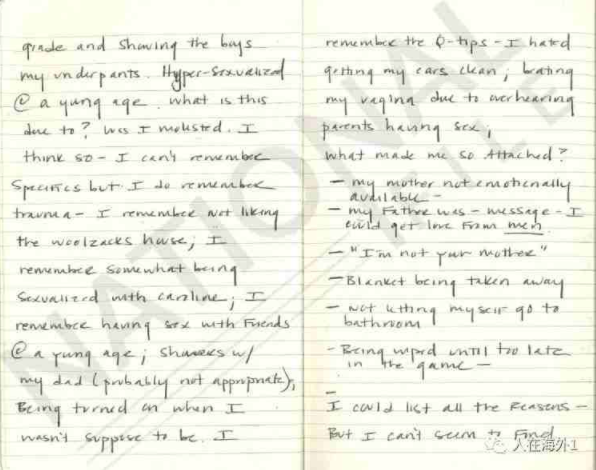 grade and showing the boys
my underpants. Hyper-sexualized
@ a yung age. what is this
due to? Was I molested. I
think so - I can't remember
specifics but I do remember
trauma - I remember not liking
the woolzacks house; I
remember somewhat being
sexualized with caroline; I
remember having sex with Friends
@ a yung age; showers w/
my dad (probably not appropriate);
Being turned on when I
wasn't suppose to be. I
remember the Q-tips - I hated
getting my ears clean;
my vagina due to overhearing
parents having sex;
what made me so Attached?
- my mother not emotionally
available -
- my Father was - message - I
could get love from men.
- "I'm not your mother"
- Blanket being taken away
- not letting myself go to
bathroom
- Being wiped until too late
in the game -
-
I could list all the Reasons -
But I can't seem to Find
NATIONAL
FILE
人在海外1